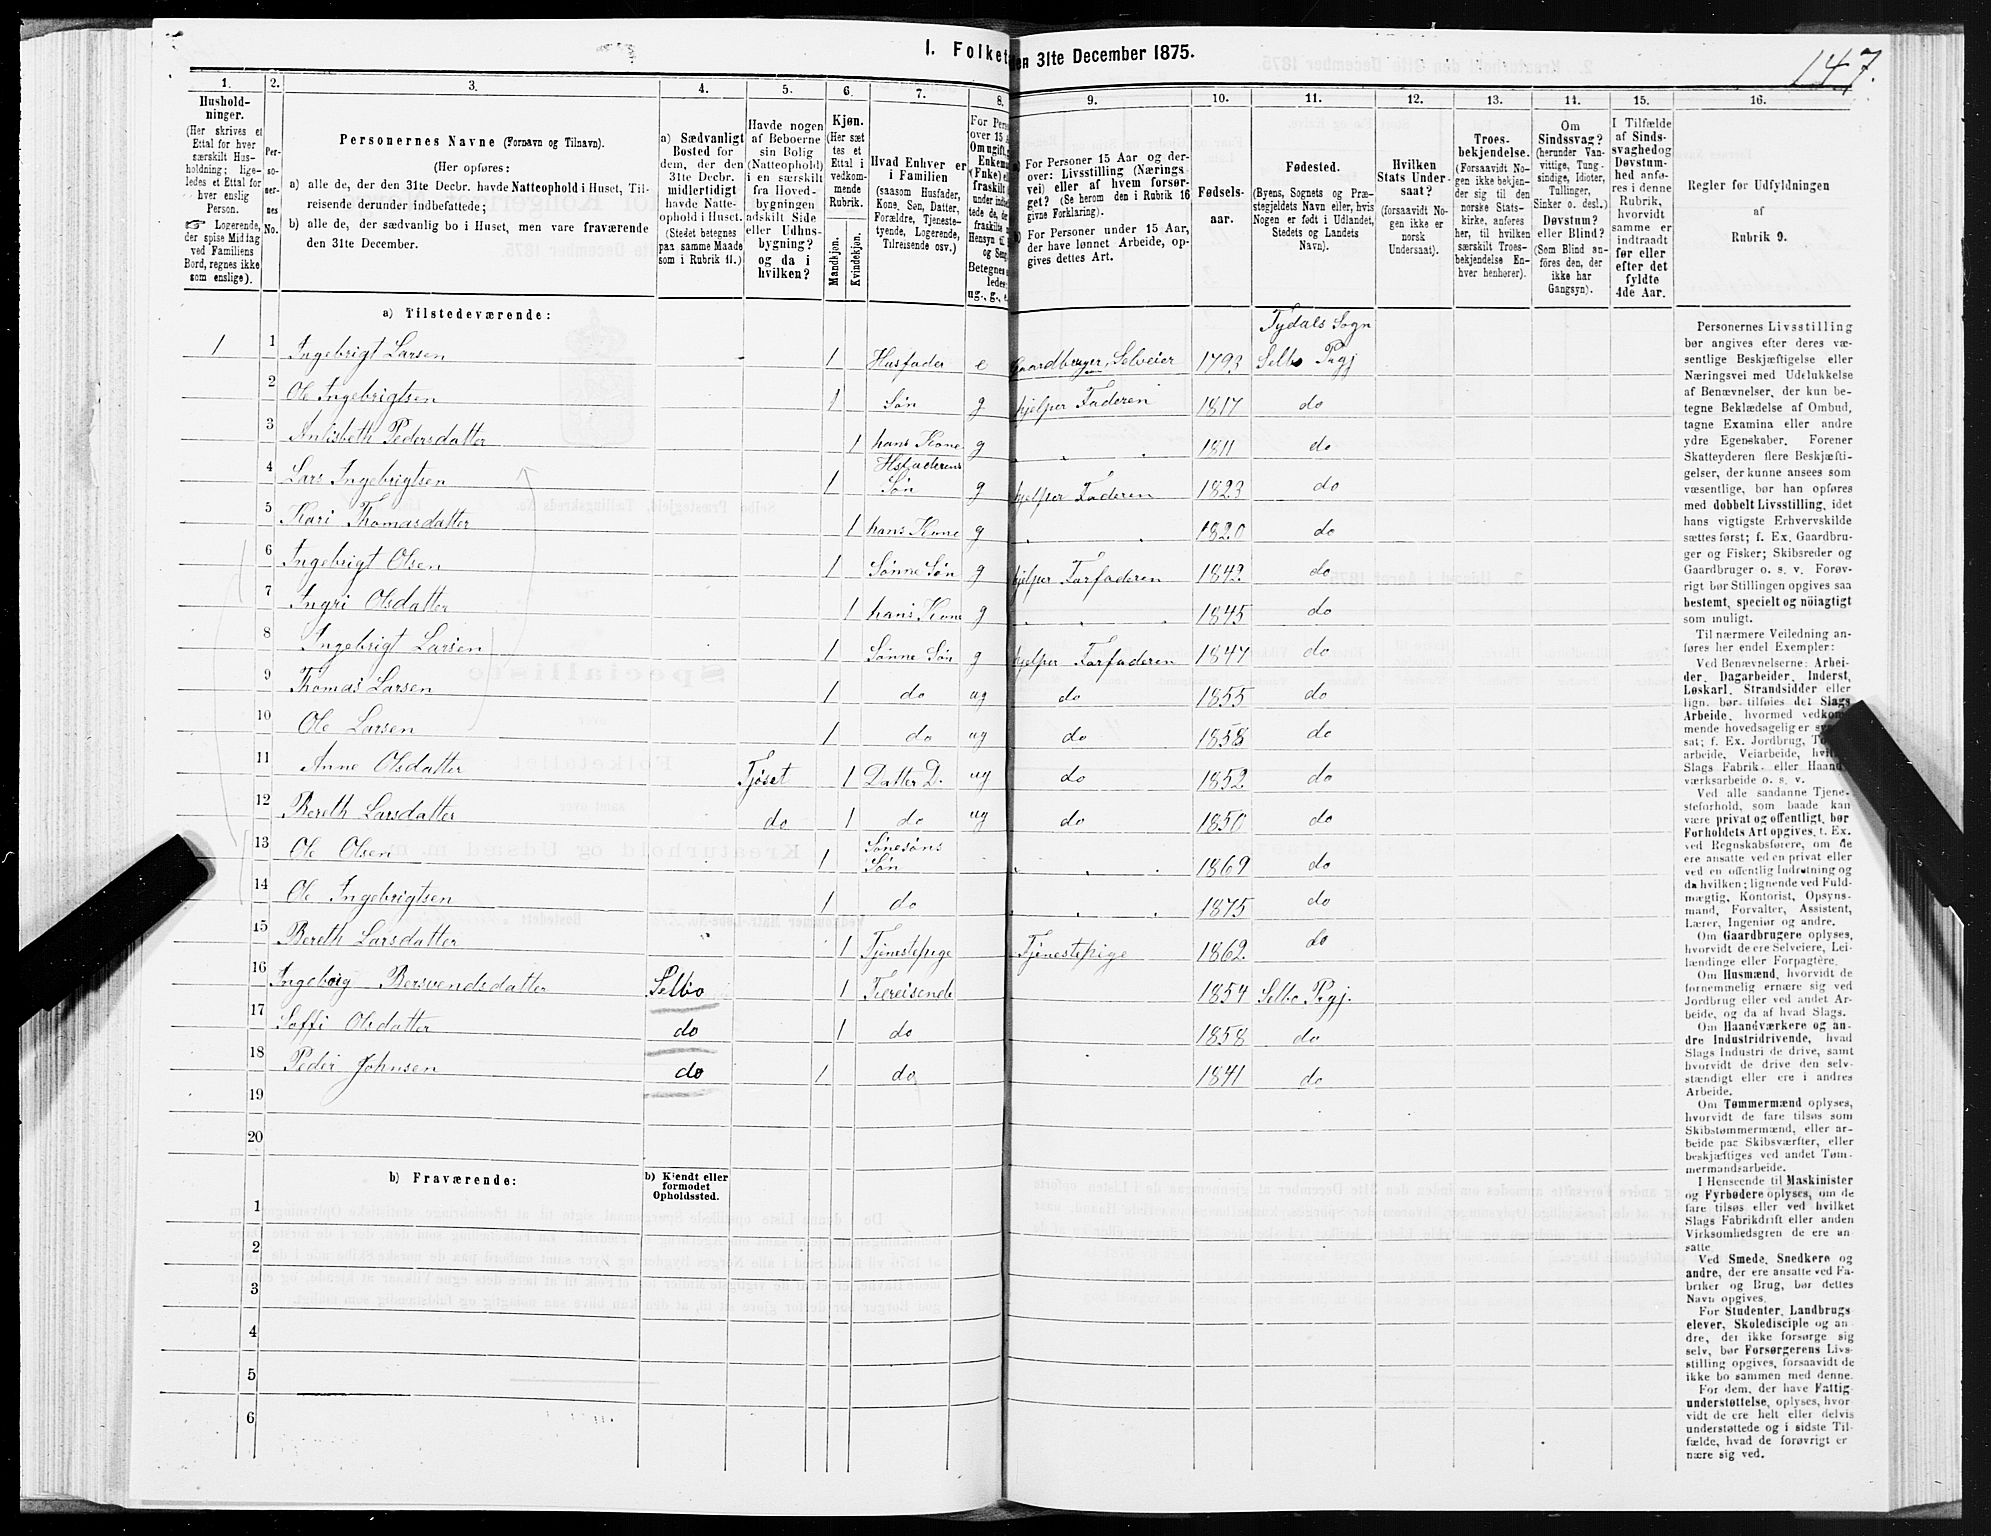 I. Folket
den 31te December 1875.
147.
1.
2.
3.
4.
5.
6.
7.
8.
9.
10.
11.
12.
13.
14.
15.
16.
Hushold-
ninger.
(Her skrives et
Ettal for hver
særskilt Hus-
holdning; lige-
ledes et Ettal for
hver enslig
Person.
☞ Logerende,
der spise Middag
ved Familiens
Bord, regnes ikke
som enslige).
Per-
so-
ner-
nes
No.
Personernes Navne (Fornavn og Tilnavn).
(Her opføres:
a) alle de, der den 31te Decbr. havde Natteophold i Huset, Til-
reisende derunder indbefattede;
b) alle de, der sædvanlig bo i Huset, men vare fraværende
den 31te December.
a) Sædvanligt
Bosted for
dem, der den
31te Decbr.
midlertidigt
havde Natte-
ophold i Huset.
(Stedet betegnes
paa samme Maade
som i Rubrik 11.)
Havde nogen
af Beboerne
sin Bolig
(Natteophold)
i en særskilt
fra Hoved-
bygningen
adskilt Side
eller Udhus-
bygning?
og da i
hvilken?
Kjøn.
(Her sæt
tes et
Ettal i
vedkom-
mende
Rubrik.
Mandkjøn.
Kvindekjøn.
Hvad Enhver er
i Familien
(saasom Husfader,
Kone, Søn, Datter,
Forældre, Tjeneste-
tyende, Logerende,
Tilreisende osv.)
For Pers
over 15
Om ugift,
Enkem
(Enke) e
fraskilt
under indb
tede de,
fraskilte
Hensyn ti
og Sen
Betegnes
ledes:
ug., g., e.
a) For Personer 15 Aar og der-
over: Livsstilling (Nærings
vei) eller af hvem forsør-
get? (Se herom den i Rubrik 16
givne Forklaring).
b) For Personer under 15 Aar,
der have lønnet Arbeide, op-
gives dettes Art.
Fødsels-
aar.
Fødested.
(Byens, Sognets og Præ-
stegjeldets Navn eller, hvis
Nogen er født i Udlandet,
Stedets og Landets
Navn).
Hvilken
Stats Under-
saat?
(forsaavidt No-
gen ikke er
norsk
Undersaat).
Troes-
bekjendelse.
(Forsaavidt No-
gen ikke bekjen-
der sig til den
norske Stats-
kirke, anføres
her, til hvilken
særskilt Troes-
bekjendelse En-
hver henhører).
Om
Sindssvag?
(herunder Van-
vittige, Tung-
sindige, Idioter,
Tullinger,
Sinker o. desl.)
Døvstum?
eller Blind?
(Som Blind an-
føres den, der
ikke har
Gangsyn).
I Tilfælde
af Sinds-
svaghed og
Døvstum-
hed anfø-
res i denne
Rubrik,
hvorvidt
samme er
indtraadt
før eller
efter det
fyldte
4de Aar.
Regler for Udfyldningen
af
Rubrik 9.
a) Tilstedeværende:
Tydals Sogn
1 1 Ingebrigt Larsen 1 Husfader e Gaardbruger, Selveier 1793 Selbo Prgj
2 Ole Ingebrigtsen 1 Søn g hjelper Faderen 1817 do
3 Anlisbeth Pedersdatter 1 hans Kone g " " 1811 do
Hsfaderens
4 Lars Ingebrigtsen 1 Søn g hjelper Faderen 1823 do
5 Kari Thomasdatter 1 hans Kone g " " 1820 do
6 Ingebrigt Olsen 1 Sønne Søn g hjelper Farfaderen 1842 do
7 Ingri Olsdatter 1 hans Kone g " " " 1845 do
8 Ingebrigt Larsen 1 Sønne Søn g hjelper Farfaderen 1847 do
9 Thomas Larsen 1 do ug do 1855 do
10 Ole Larsen 1 do ug do 1858 do
11 Anne Olsdatter Fjøset 1 Datter D. ug do 1852 do
12 Bereth Larsdatter do 1 do ug do 1850 do
Sønesøns
13 Ole Olsen 1 Søn " " " 1869 do
14 Ole Ingebrigtsen 1 do " " " 1875 do
15 Bereth Larsdatter 1 Tjenestepige Tjenestepige 1862 do
16 Ingeborg Bersvendsdatter Selbo 1 Tilreisende 1854 Selbo Prgj.
17 Soffi Olsdatter do 1 do 1858 do
18 Peder Johnsen do 1 do 1841 do
19
20
b) Fraværende:
b) Kjendt eller
formodet
Opholdssted.
1
2
3
4
5
6
Personernes Livsstilling
bør angives efter deres væ-
sentlige Beskjæftigelse eller
Næringsvei med Udelukkelse
af Benævnelser, der kun be-
tegne Beklædelse af Ombud,
tagne Examina eller andre
ydre Egenskaber. Forener
Skatteyderen flere Beskjæfti-
gelser, der kunne ansees som
væsentlige, bør han opføres
med dobbelt Livsstilling, idet
hans vigtigste Erhvervskilde
sættes først; f. Ex. Gaardbru-
ger og Fisker; Skibsreder og
Gaardbruger o. s. v. Forøv-
rigt bør Stillingen opgives saa
bestemt, specielt og nöiagtigt
som muligt.
Til nærmere Veiledning an-
føres her endel Exempler:
Ved Benævnelserne: Arbei-
der, Dagarbeider, Inderst,
Løskarl, Strandsidder eller
lign. bør tilføies det Slags
Arbeide, hvormed vedkom-
mende hovedsagelig er sys
sat; f. Ex. Jordbrug, To
arbeide, Veiarbeide, hvil
Slags Fabrik- eller Haand
værksarbeide o. s. v.
Ved alle saadanne Tjene-
steforhold, som baade kan
være privat og offentligt, bør
Forholdets Art opgives, t. Ex.
ved Regnskabsførere, om de
ere ansatte ved en privat eller
ved en offentlig Indretning og
da hvilken; lignende ved Fuld-
mægtig, Kontorist, Opsyns-
mand, Forvalter, Assistent,
Lærer, Ingeniør og andre.
Om Gaardbrugere oplyses,
hvorvidt de ere Selveiere, Lei-
lændinge eller Forpagtere.
Om Husmænd, hvorvidt de
fornemmelig ernære sig ved
Jordbrug eller ved andet Ar-
beide, og da af hvad Slags.
Om Haandværkere og an-
dre Industridrivende, hvad
Slags Industri de drive, samt
hvorvidt de drive den selv-
stændigt eller ere i andres
Arbeide.
Om Tømmermænd oplyses,
hvorvidt de fare tilsøs som
Skibstømmermænd, eller ar-
beide paa Skibsværfter, eller
beskjæftiges ved andet Tøm-
mermandsarbeide.
I Henseende til Maskinister
og Fyrbødere oplyses, om de
fare tilsøs eller ved hvilket
Slags Fabrikdrift eller anden
Virksomhedsgren de ere an-
satte.
Ved Smede, Snedkere og
andre, der ere ansatte ved Fa-
briker og Brug, bør dettes
Navn opgives.
For Studenter, Landbrugs
elever, Skoledisciple og an-
dre, der ikke forsørge sig
selv, bør Forsørgerens Livs-
stilling opgives, forsaavidt de
ikke bo sammen med denne.
For dem, der have Fattig
understøttelse, oplyses, hvor-
vidt de ere helt eller delvis
understøttede og i sidste Til-
fælde, hvad de forøvrigt er
nære sig ved.